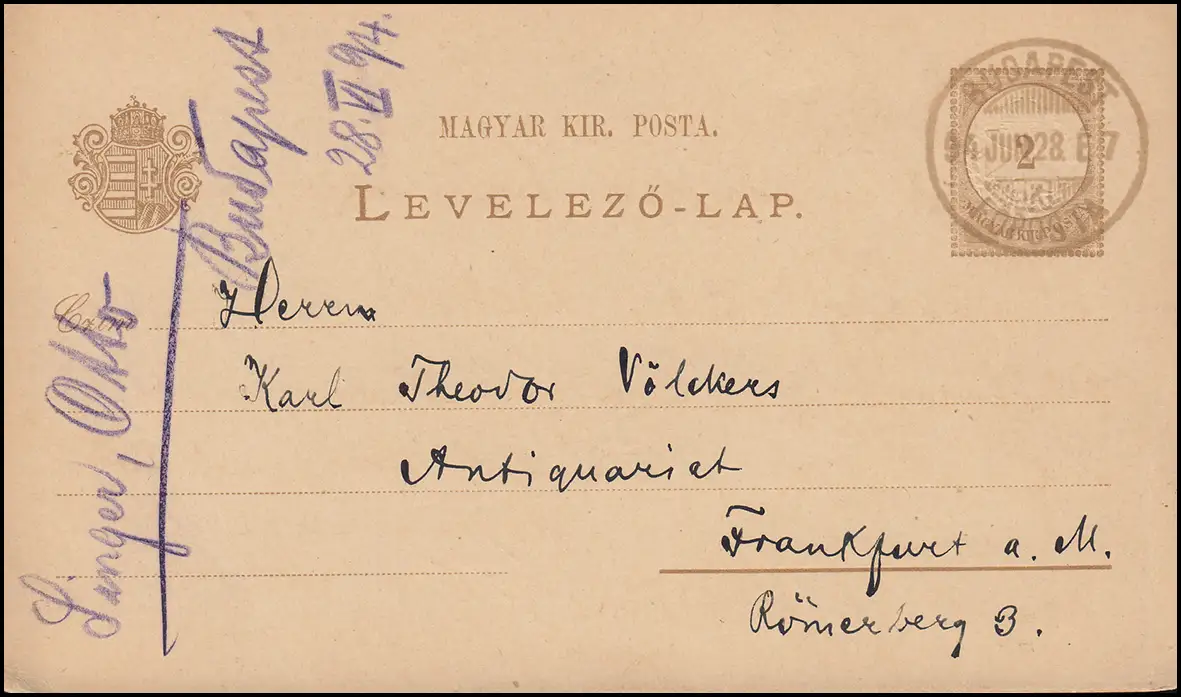 Budapest
28. VI 94.
MAGYAR KIR. POSTA.
LEVELEZŐ-LAP.
BUDAPEST
94 JUN 28.
2
MAGYAR KIR. POSTA
Czím
Singer, Otto
Herrn
Karl Theodor Völckers
Antiquariat
Frankfurt a. M.
Römerberg 3.